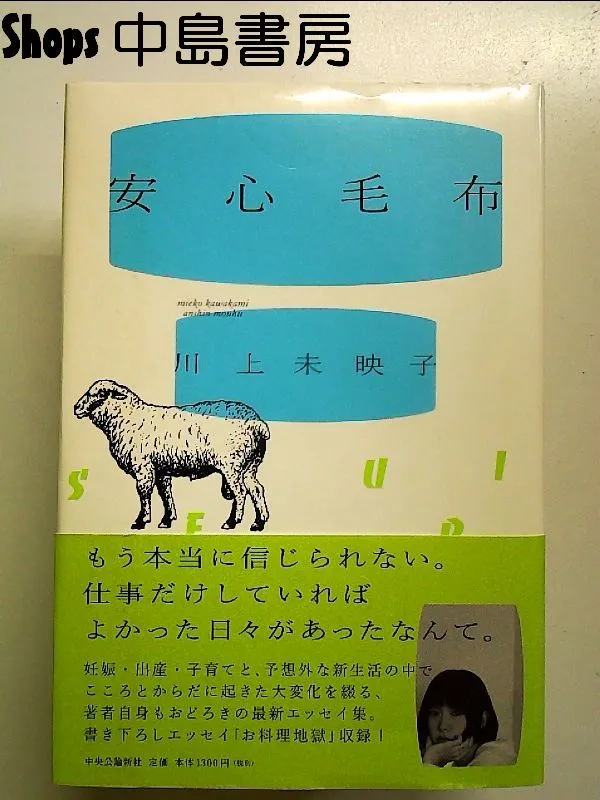 Shops 中島書房
安心毛布
mieko kawakami
anshin mouhu
川上未映子
S U I
E R
もう本当に信じられない。
仕事だけしていれば
よかった日々があったなんて。
妊娠・出産・子育てと、予想外な新生活の中で
こころとからだに起きた大変化を綴る、
著者自身もおどろきの最新エッセイ集。
書き下ろしエッセイ「お料理地獄」収録！
中央公論新社 定価 本体1300円(税別)